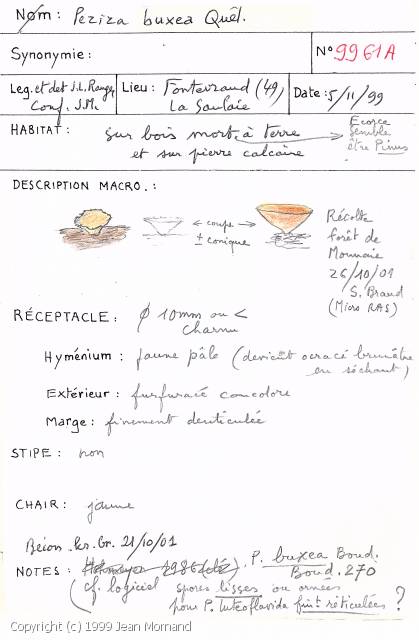 Nom: Peziza buxea Quél.
Synonymie:
N° 9961A
Leg. et det J.L. Ranger
Conf. J.M.
Lieu: Fontevraud (49)
La Gaulaie
Date: 5/11/99
HABITAT: sur bois mort, à terre
et sur pierre calcaire
Ecorce
semble
être Pinus
DESCRIPTION MACRO.:
coupe
± conique
Récolte
forêt de
Monnaie
26/10/01
S. Braud
(Micro RAS)
RÉCEPTACLE: φ 10mm ou <
charnu
Hyménium: jaune pâle (devient ocracé brunâtre
en séchant)
Extérieur: furfuracé concolore
Marge: finement denticulée
STIPE: non
CHAIR: jaune
21/10/01
NOTES: 1986 P. buxea Boud.
Boud. 270
(cf. logiciel spores lisses ou ornées
pour P. luteoflavida finᵗ réticulées?
Copyright (c) 1999 Jean Mornand